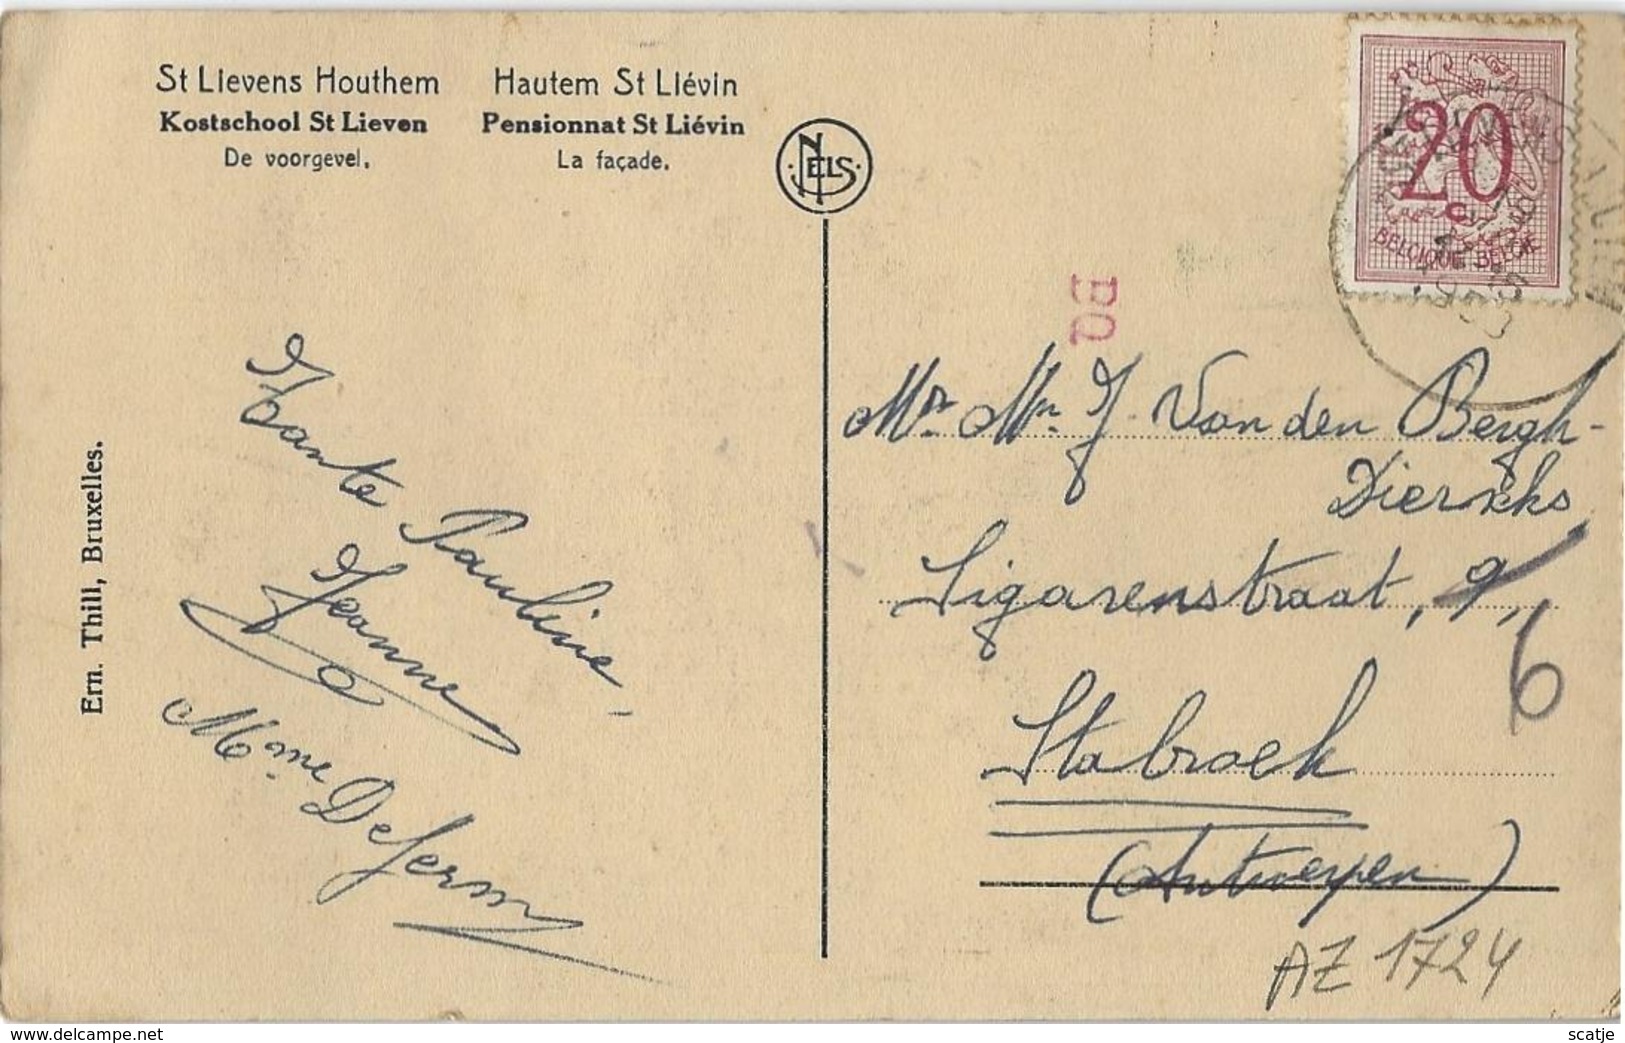 St Lievens Houthem
Kostschool St Lieven
De voorgevel.
Hautem St Liévin
Pensionnat St Liévin
La façade.
NELS
20
c
BELGIQUE BELGIE
BQ
Ern. Thill, Bruxelles.
Tante Pauline -
Jeanne
Mme De
Mr. Mr. J. Van den Bergh-
Dierckx
Sigarenstraat, 9,
6
Stabroek
(Antwerpen)
AZ 1724
© delcampe.net
scatje